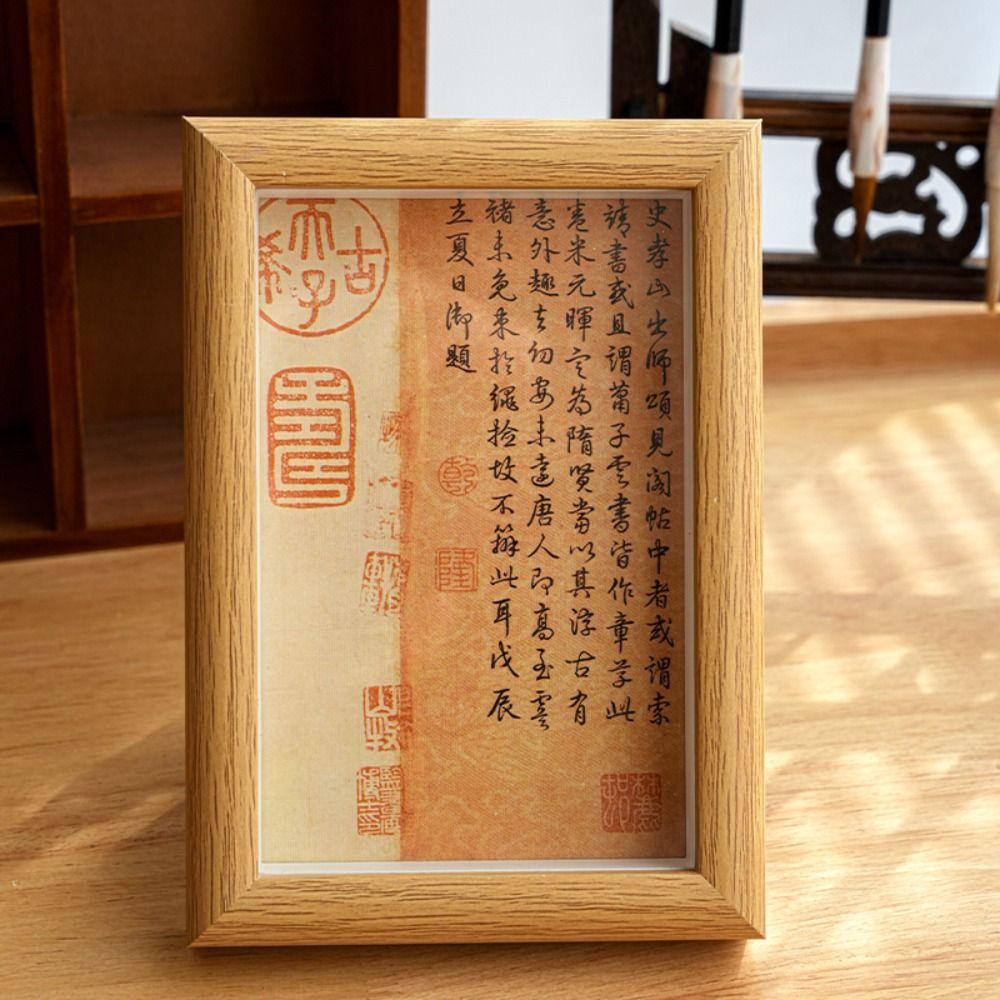 史孝山出師頌見閣帖中者或謂索
靖書或且謂蕭子雲書皆作章草此
卷米元暉定為隋賢當以其淳古有
意外趣去幼安未遠唐人即高至虞
褚未免束於繩撿故不辦此耳戊辰
立夏日御題
乾
隆
古希天子
壽